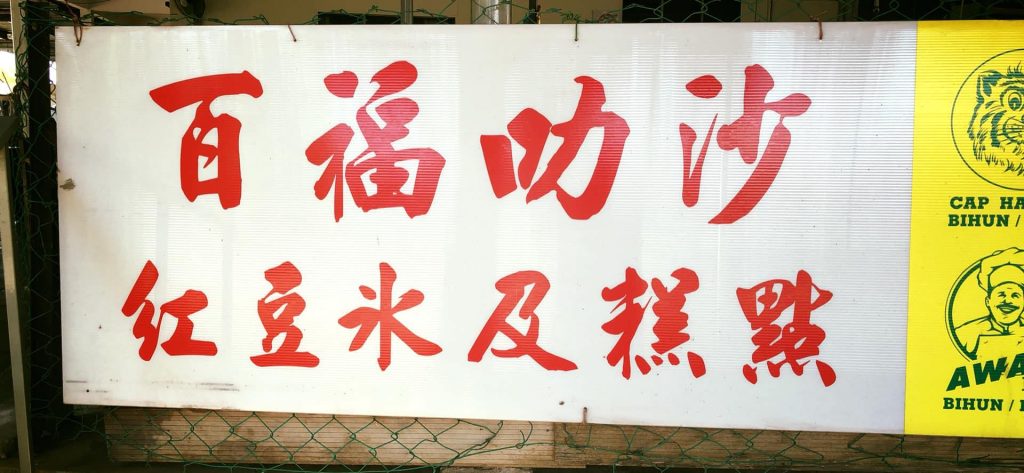 百福叻沙
红豆冰及糕點
CAP HA
BIHUN /
AWA
BIHUN /